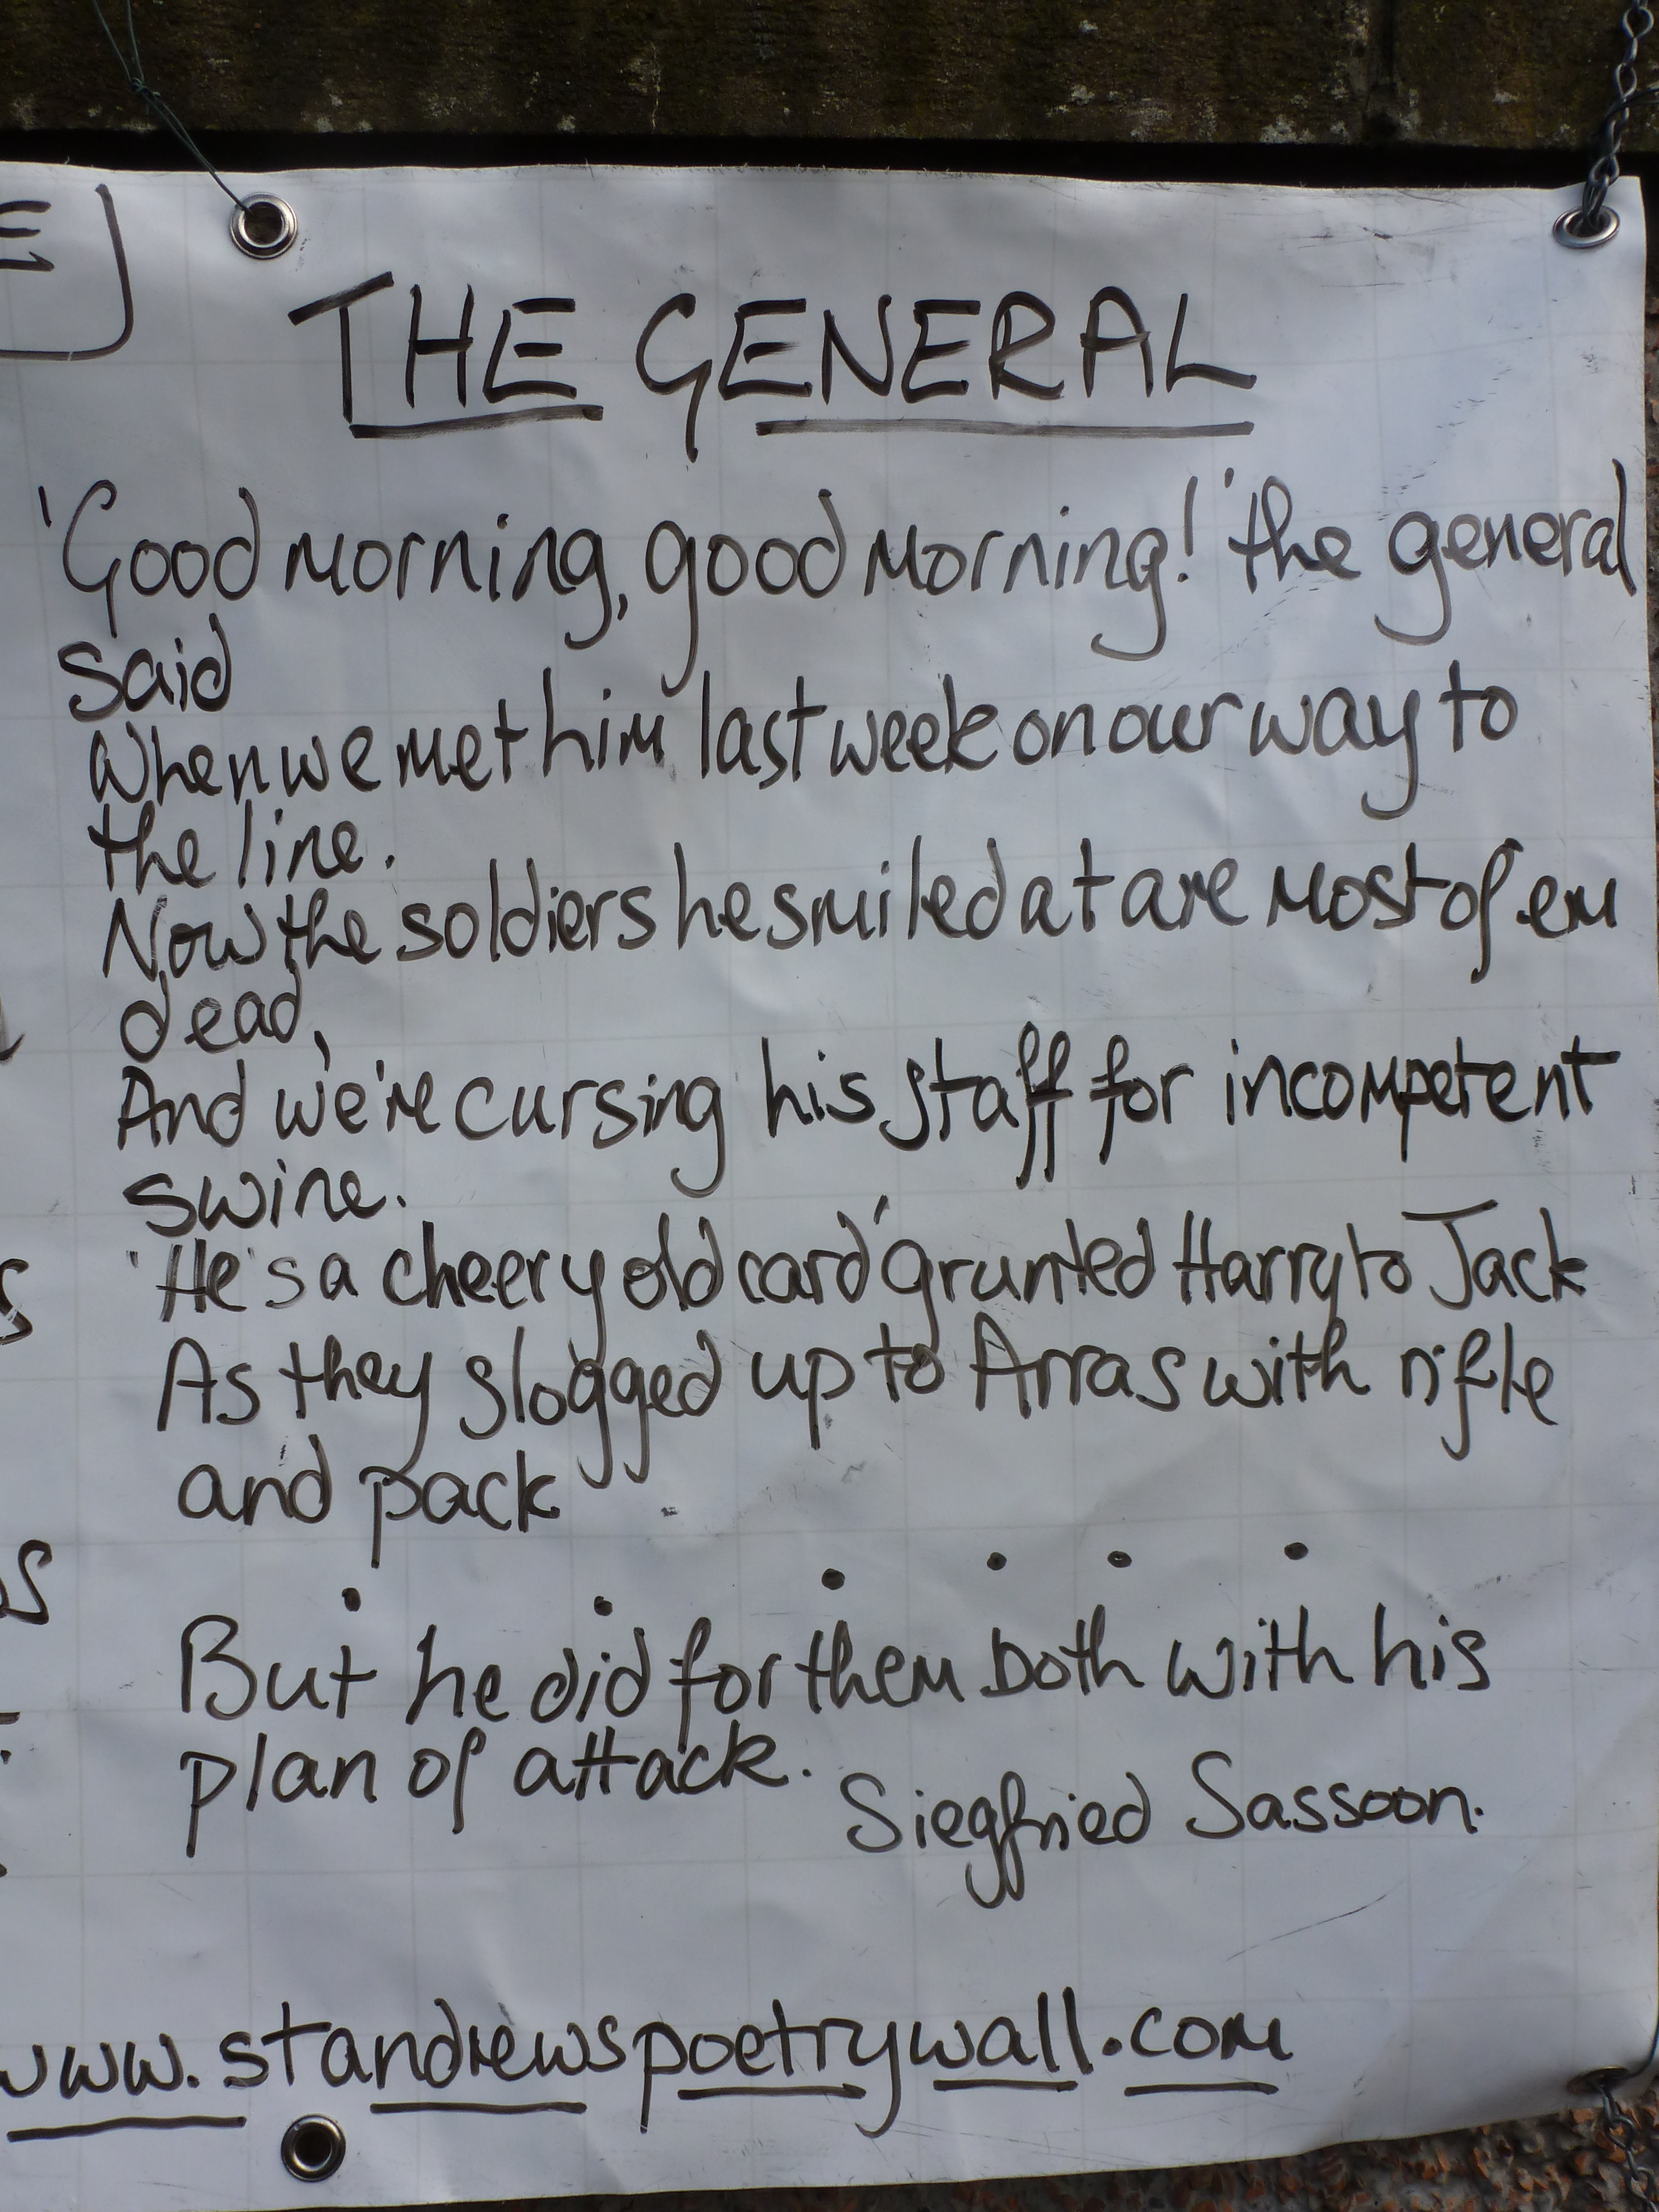 THE GENERAL
'Good morning, good morning!' the general
said
When we met him last week on our way to
the line.
Now the soldiers he smiled at are most of em
dead,
And we're cursing his staff for incompetent
swine.
'He's a cheery old card' grunted Harry to Jack
As they slogged up to Arras with rifle
and pack
. . . . . .
But he did for them both with his
plan of attack.
Siegfried Sassoon.
www.standrewspoetrywall.com